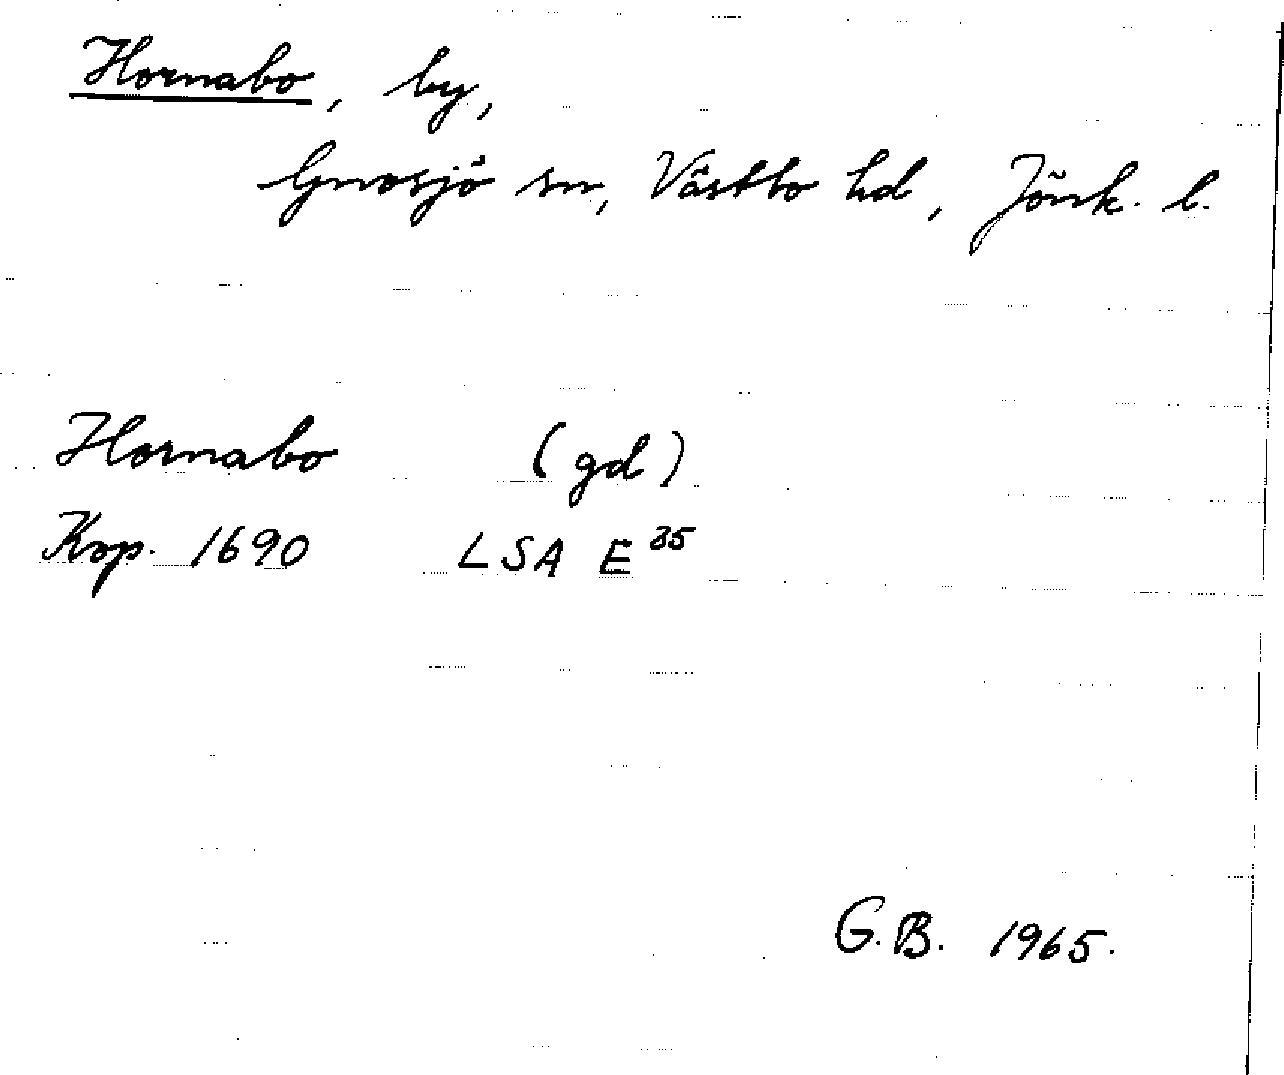 Hornabo, by,
Gnosjö sn, Västbo hd, Jönk. l.
Hornabo (gd)
Kop. 1690 LSA E 35
G.B. 1965.